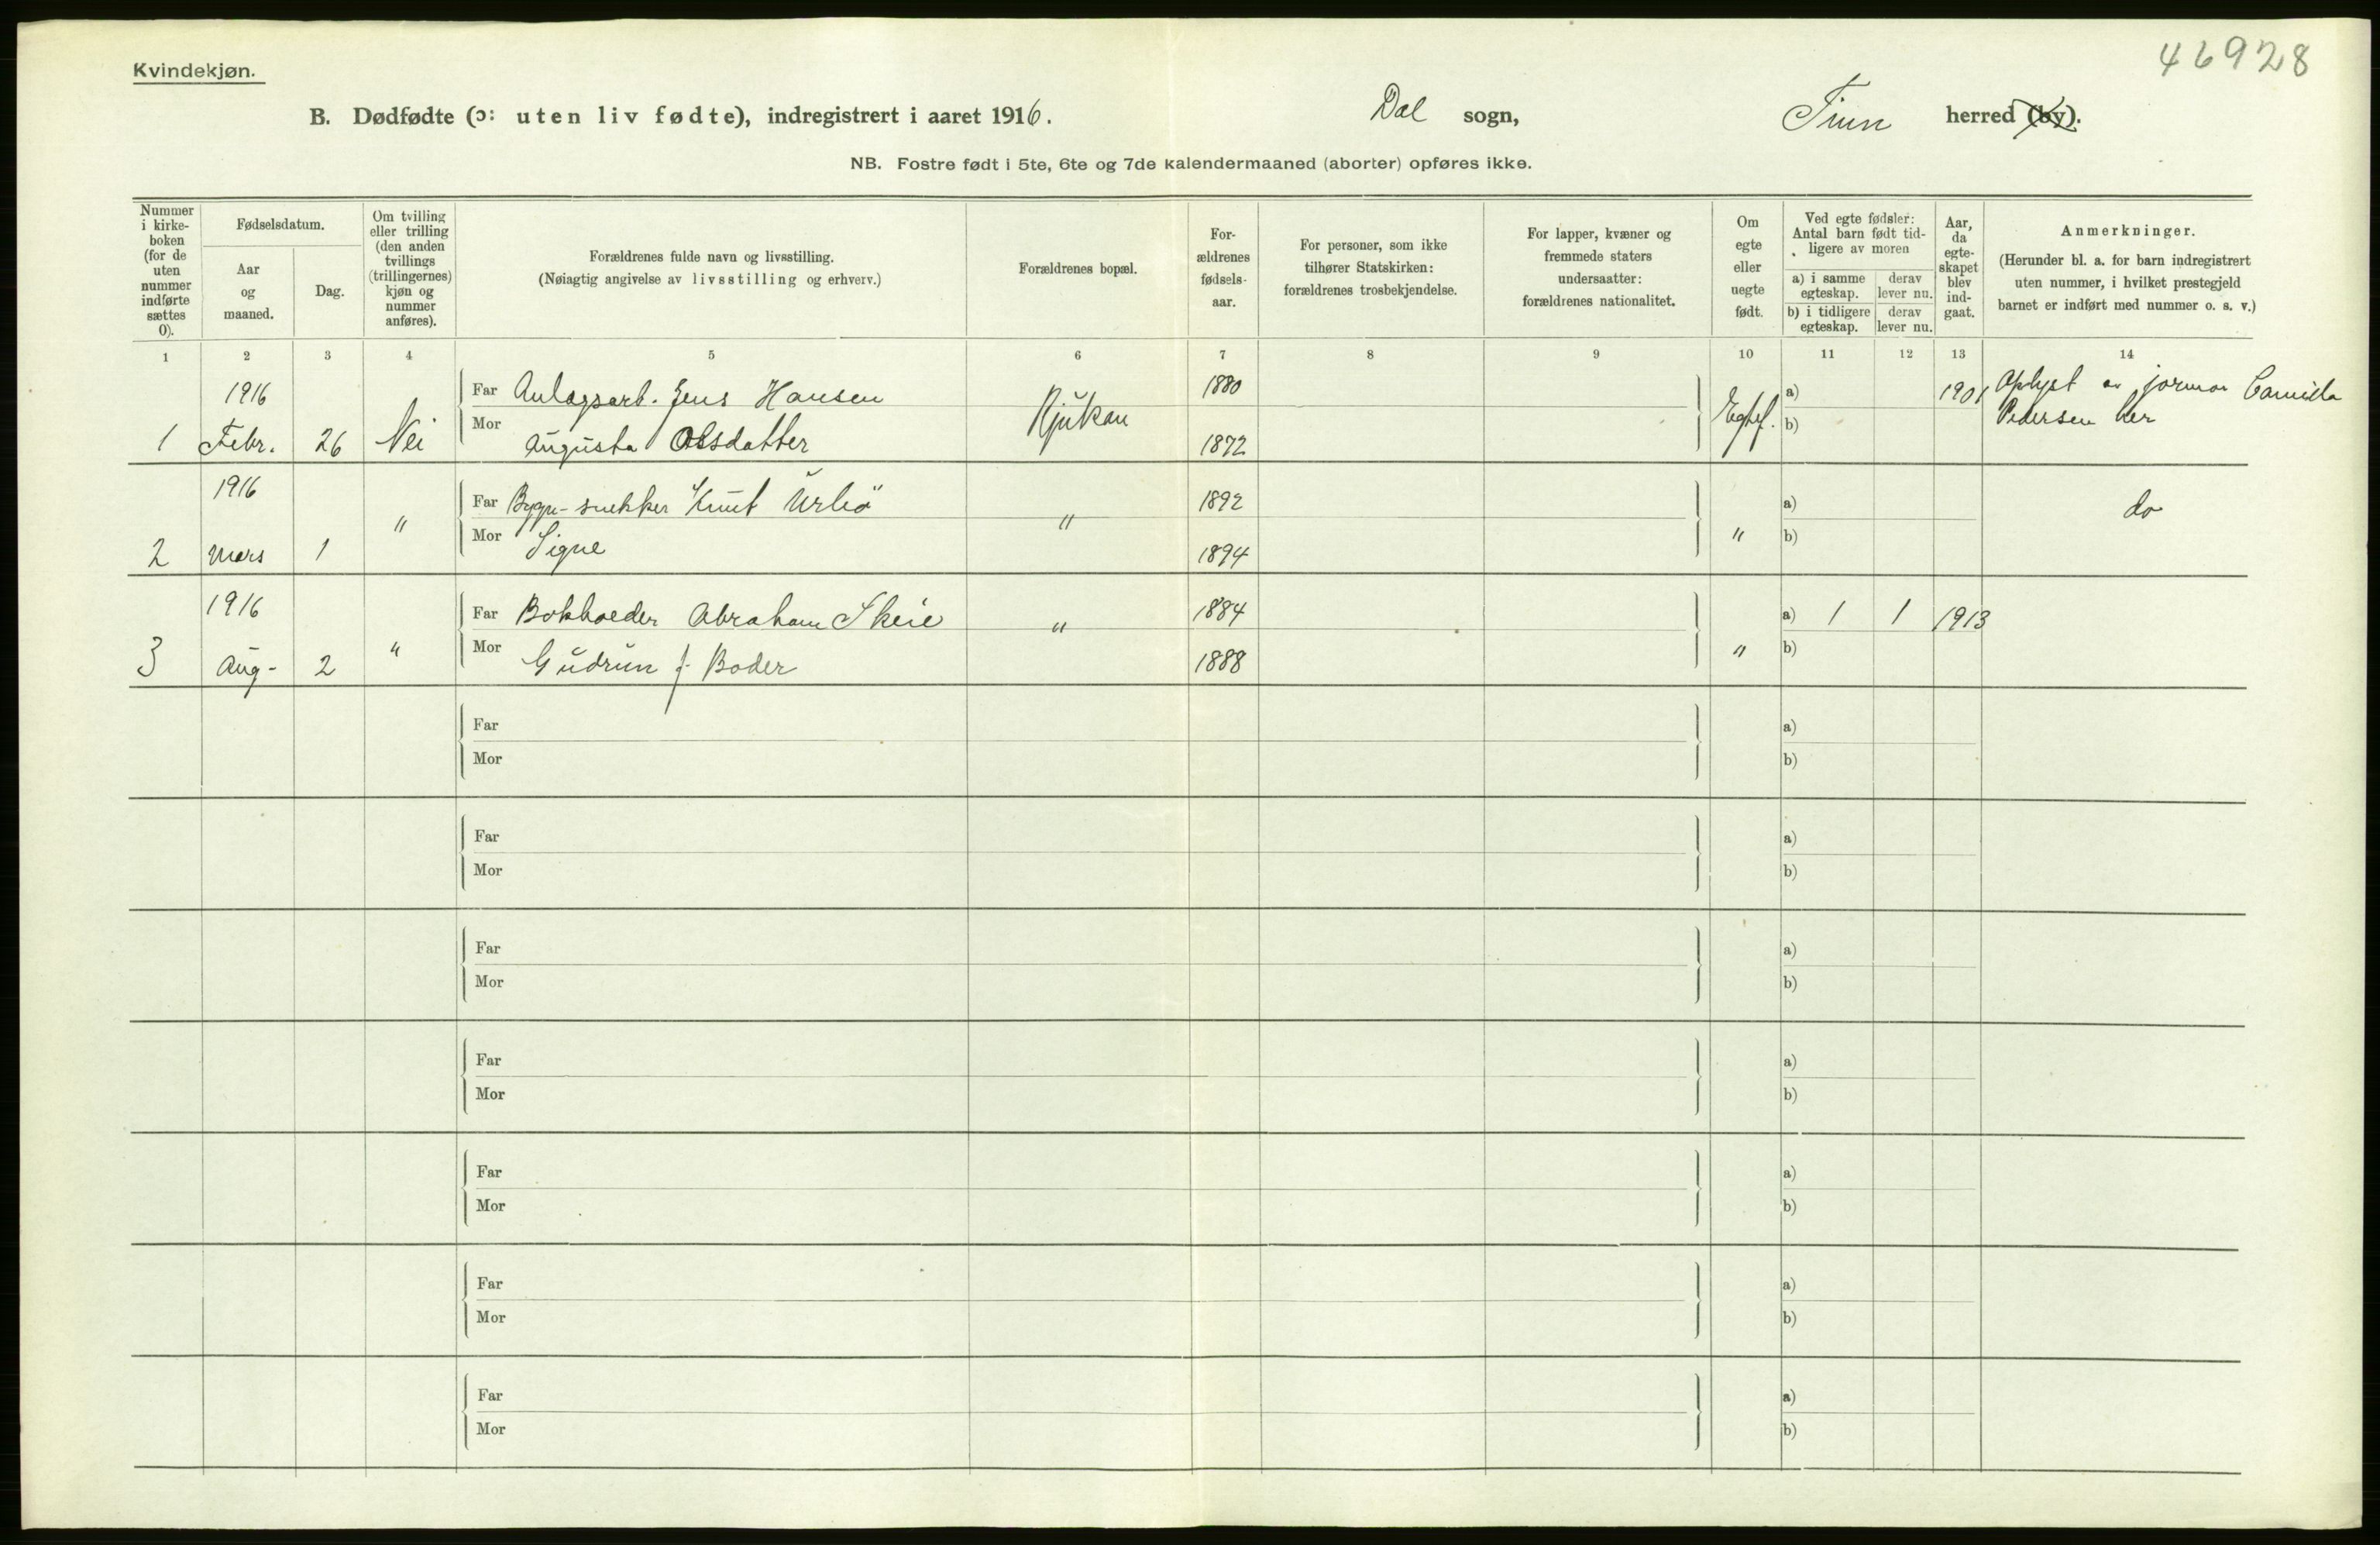 46928
Kvindekjøn.
B. Dødfødte (ɔ: uten liv fødte), indregistrert i aaret 1916. Dal sogn, Tinn herred (by).
NB. Fostre født i 5te, 6te og 7de kalendermaaned (aborter) opføres ikke.
Nummer
i kirke-
boken
(for de
uten
nummer
indførte
sættes
0).
Fødselsdatum.
Aar
og
maaned.
Dag.
Om tvilling
eller trilling
(den anden
tvillings
(trillingernes)
kjøn og
nummer
anføres).
Forældrenes fulde navn og livsstilling.
(Nøiagtig angivelse av livsstilling og erhverv.)
Forældrenes bopæl.
For-
ældrenes
fødsels-
aar.
For personer, som ikke
tilhører Statskirken:
forældrenes trosbekjendelse.
For lapper, kvæner og
fremmede staters
undersaatter:
forældrenes nationalitet.
Om
egte
eller
uegte
født.
Ved egte fødsler:
Antal barn født tid-
ligere av moren
a) i samme
egteskap.
derav
lever nu.
b) i tidligere
egteskap.
derav
lever nu.
Aar,
da
egte-
skapet
blev
ind-
gaat.
Anmerkninger.
(Herunder bl. a. for barn indregistrert
uten nummer, i hvilket prestegjeld
barnet er indført med nummer o. s. v.)
1 2 3 4 5 6 7 8 9 10 11 12 13 14
1916 Far Anlægsarb. Jens Hansen 1880 a) 1901 Oplyst av jormor Camilla
1 Febr. 26 Nei Mor Augusta Olsdatter Rjukan 1872 Egtef. b) Pedersen her
1916 Far Bygn-snekker Knut 1892 a) do
2 Mars 1 " Mor Signe " 1894 " b)
1916 Far Bokholder Abraham Skeie 1884 a) 1 1 1913
3 Aug- 2 " Mor Gudrun f. Boder " 1888 " b)
Far a)
Mor b)
Far a)
Mor b)
Far a)
Mor b)
Far a)
Mor b)
Far a)
Mor b)
Far a)
Mor b)
Far a)
Mor b)